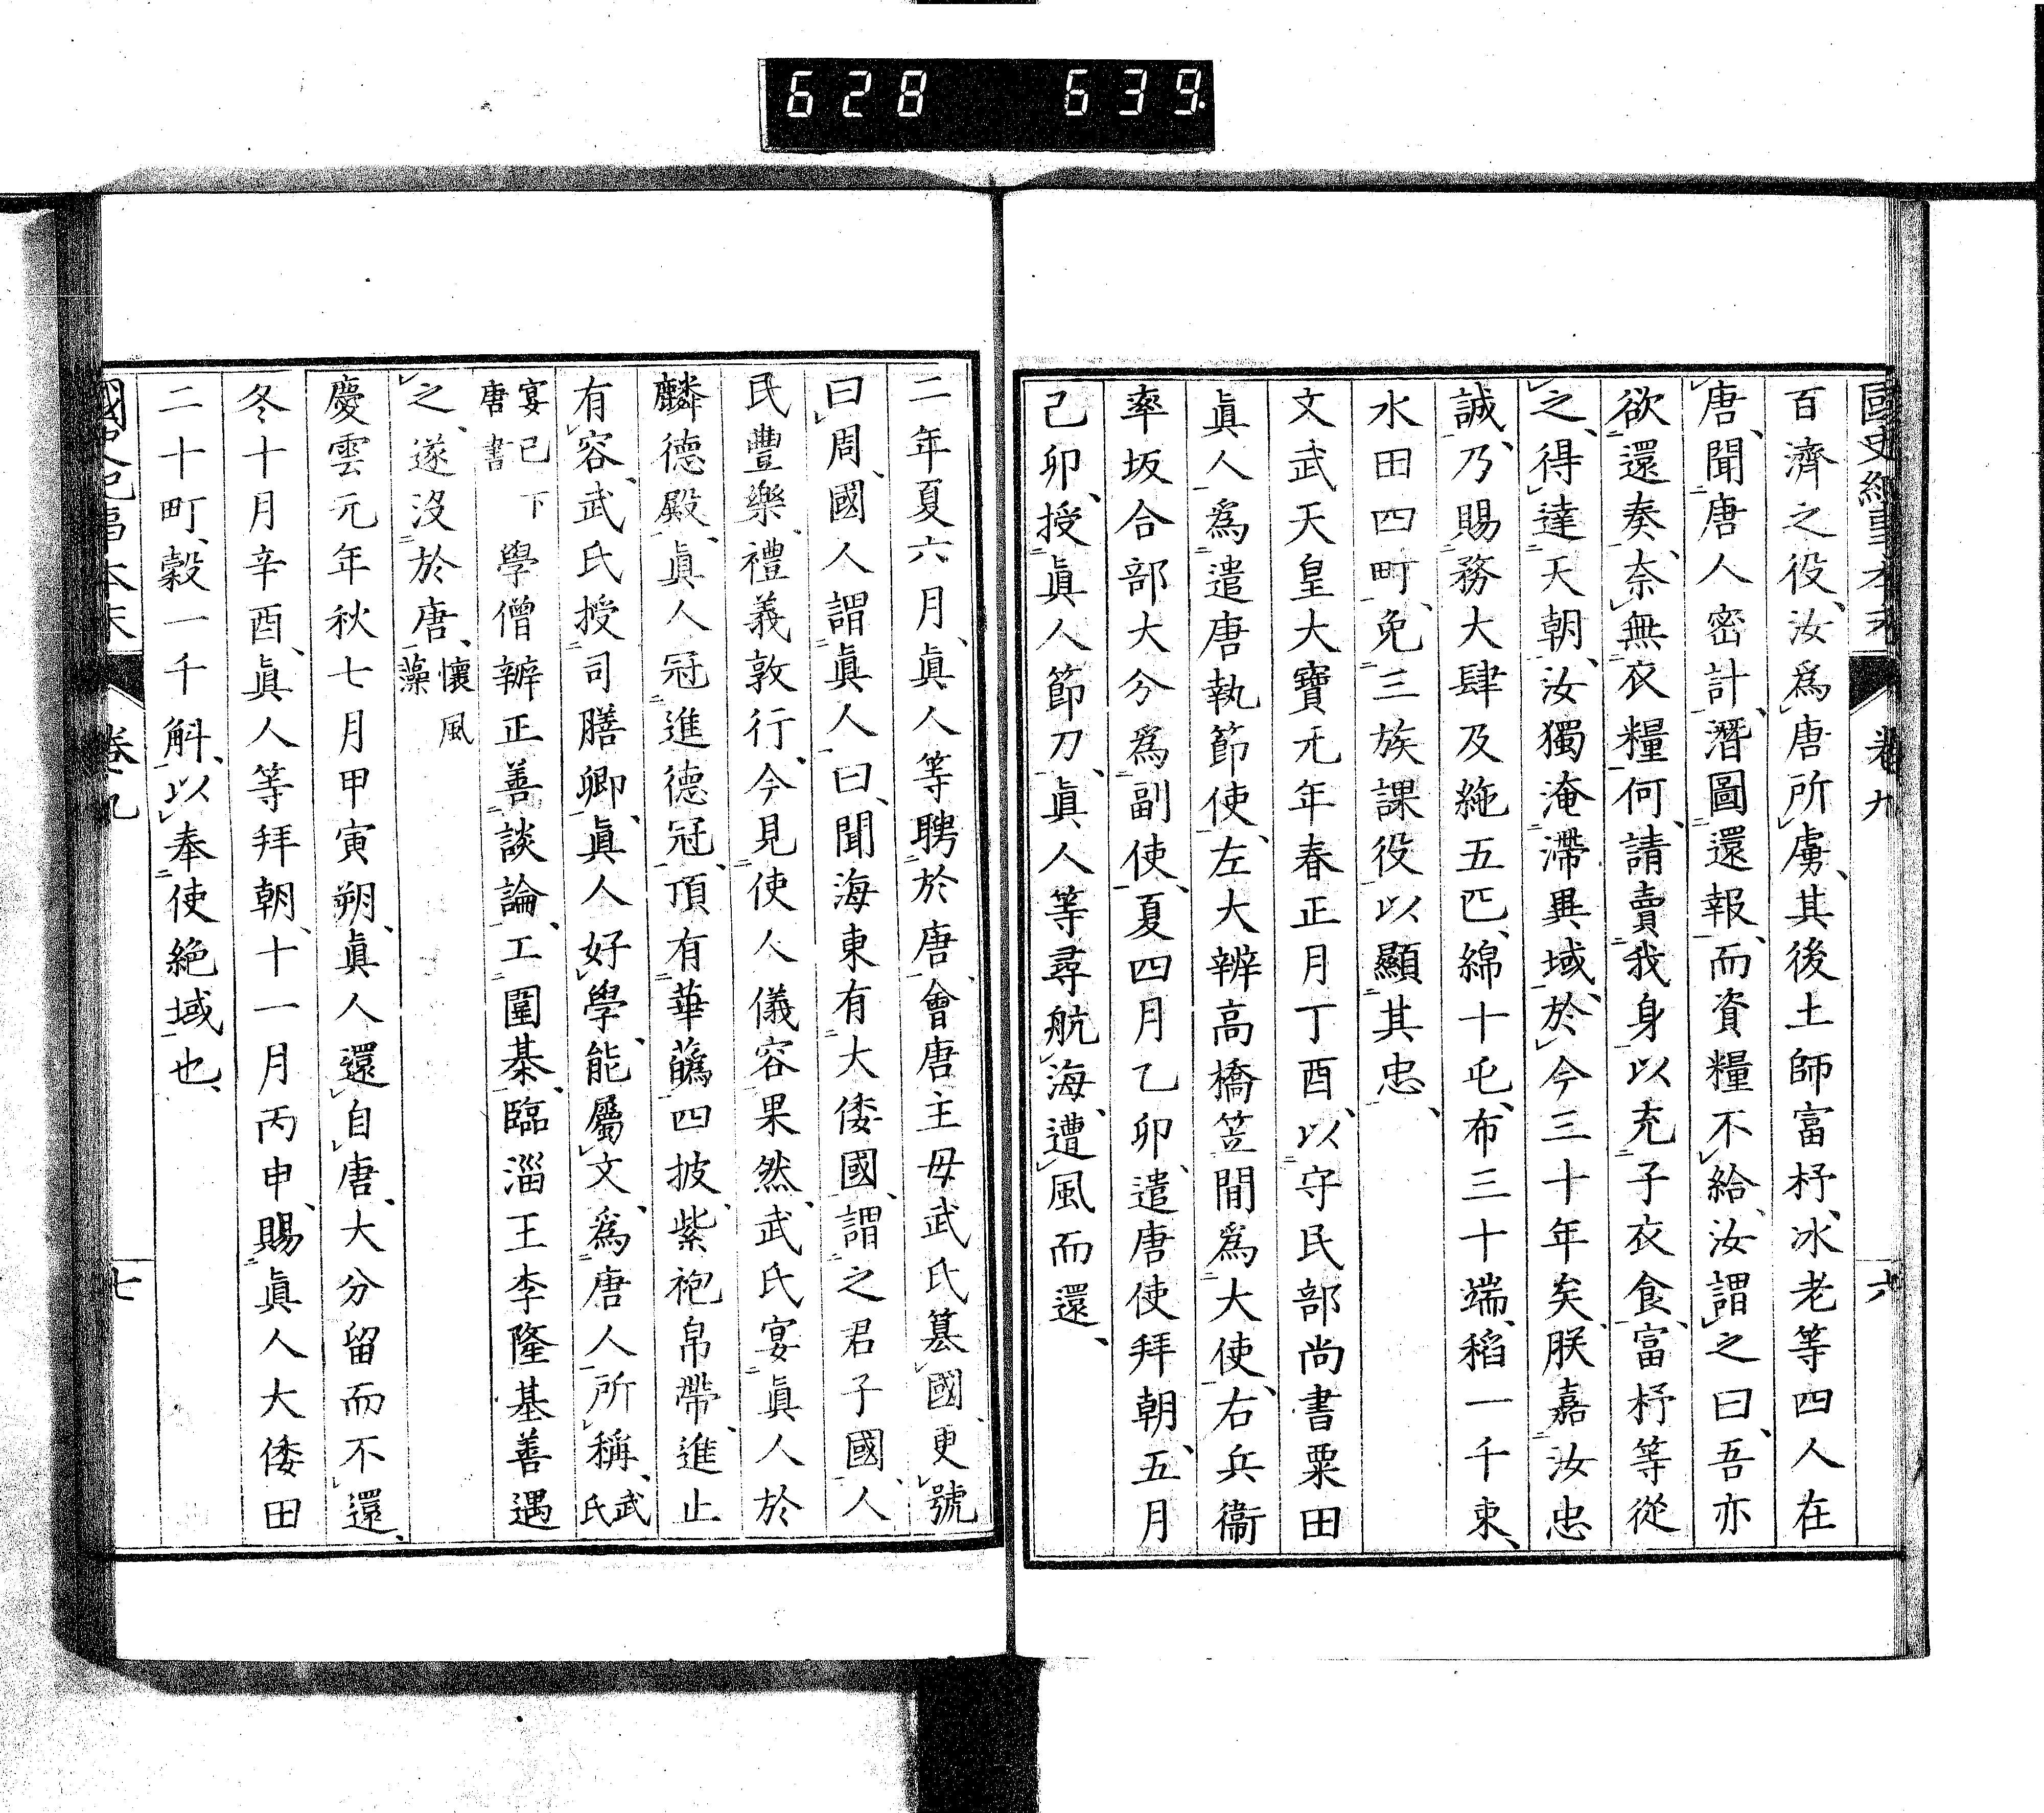 628 639.
國史紀事本末 卷九 六
百濟之役、汝爲唐所虜、其後土師富杼、冰老等四人在
唐、聞唐人密計、潛圖還報、而資糧不給、汝謂之曰、吾亦
欲還奏、奈無衣糧何、請賣我身、以充子衣食、富杼等從
之、得達天朝、汝獨淹滯異域、於今三十年矣、朕嘉汝忠
誠、乃賜務大肆及絁五匹、綿十屯、布三十端、稻一千束、
水田四町、免三族課役、以顯其忠、
文武天皇大寶元年春正月丁酉、以守民部尚書粟田
眞人爲遣唐執節使、左大辨高橋笠間爲大使、右兵衞
率坂合部大分爲副使、夏四月乙卯、遣唐使拜朝、五月
己卯、授眞人節刀、眞人等尋航海、遭風而還、
二年夏六月、眞人等聘於唐、會唐主母武氏簒國、更號
曰周、國人謂眞人曰、聞海東有大倭國、謂之君子國、人
民豐樂、禮義敦行、今見使人儀容果然、武氏宴眞人於
麟德殿、眞人冠進德冠、頂有華蘤四披、紫袍帛帶、進止
有容、武氏授司膳卿、眞人好學、能屬文、爲唐人所稱、武氏
宴已下唐書 學僧辨正善談論、工圍棊、臨淄王李隆基善遇
之、遂沒於唐、懷風藻
慶雲元年秋七月甲寅朔、眞人還自唐、大分留而不還、
冬十月辛酉、眞人等拜朝、十一月丙申、賜眞人大倭田
二十町、穀一千斛、以奉使絶域也、
國史紀事本末 卷九 七